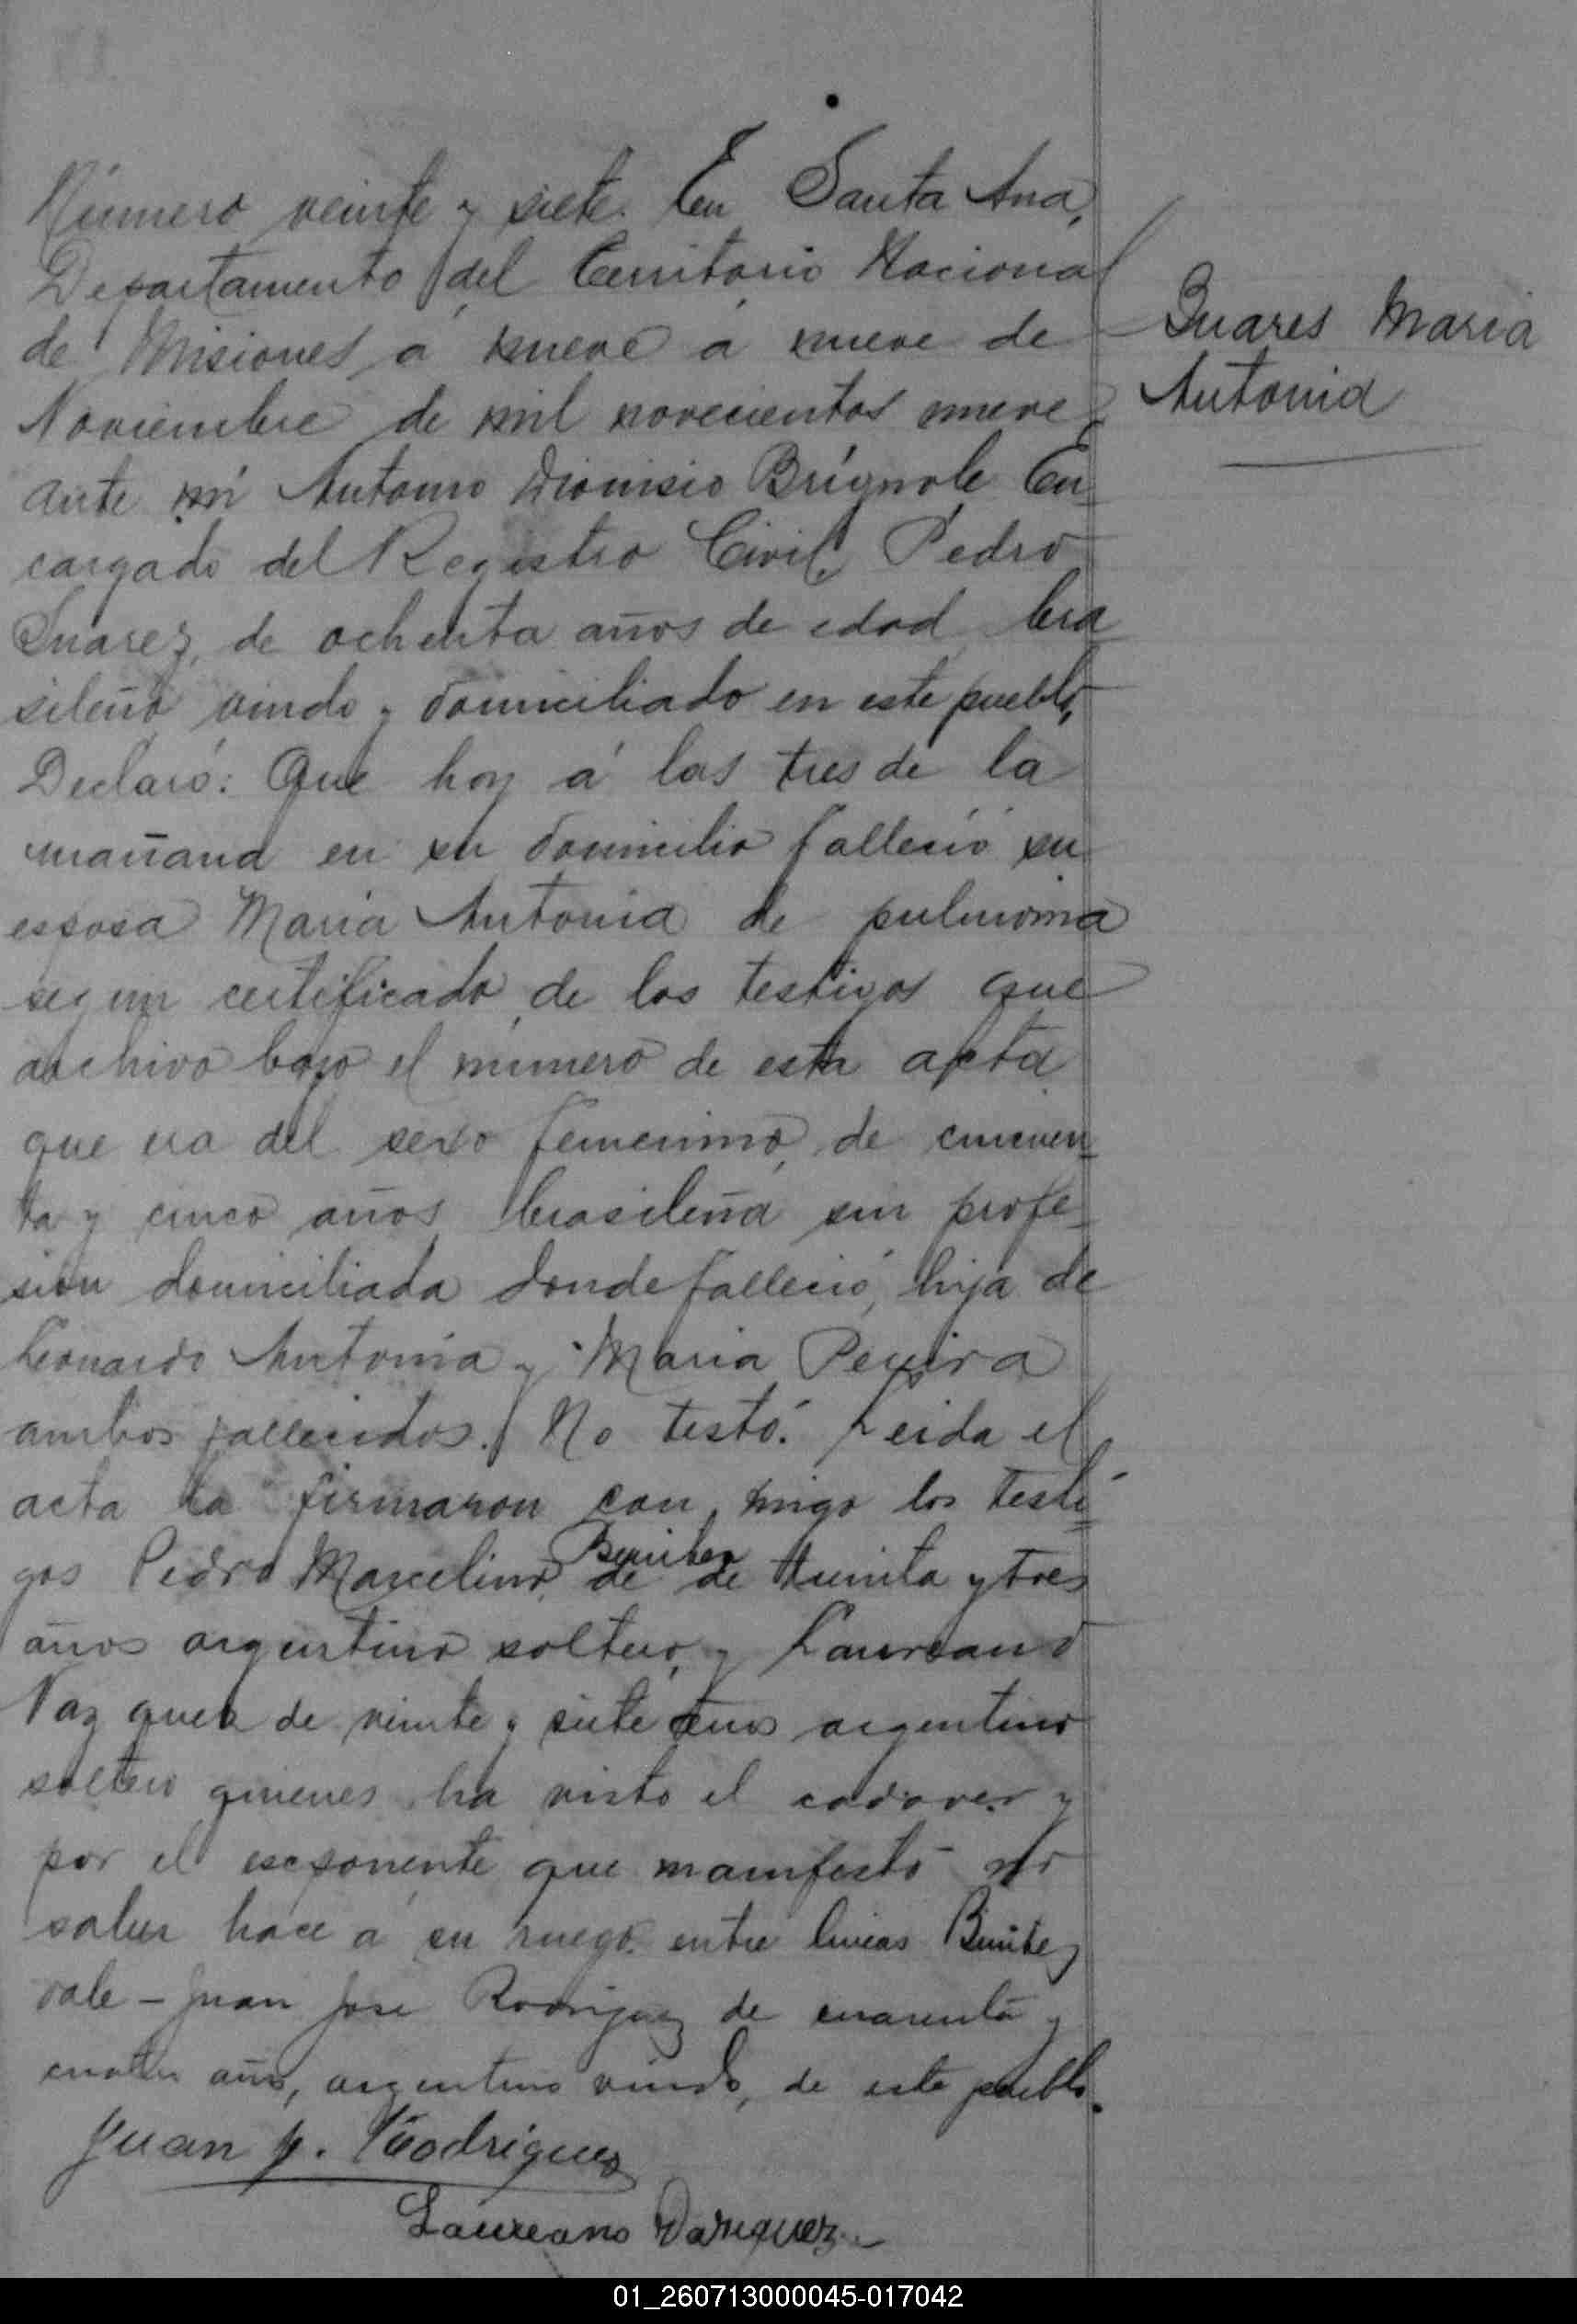 Número veinte y siete. En Santa Ana,
Departamento del Territorio Nacional
de Misiones á nueve á nueve de
Noviembre de mil novecientos nueve,
ante mí Antonio Dionisio Brignole En-
cargado del Registro Civil, Pedro
Suarez, de ochenta años de edad, bra
sileño, viudo y domiciliado en este pueblo,
Declaró: Que hoy á las tres de la
mañana en su domicilio falleció su
esposa Maria Antonia de pulmonia
segun certificado de los testigos que
archivo bajo el número de esta acta
que era del sexo femenino, de cincuen-
ta y cinco años, brasileña sin profe-
sion domiciliada donde falleció, hija de
Leonardo Antonia y Maria Pereira
ambos fallecidos. No testó. Leida el
acta la firmaron con migo los testi-
gos Pedro Marcelino de Benitez de treinta y tres
años argentino soltero, y Laureano
Vazquez de veinte y siete años argentino
soltero quienes ha visto el cadaver y
por el esponente que manifestó no
saber hace á su ruego. entre lineas Benitez
vale - Juan Jose Rodriguez de cuarenta y
cuatro años, argentino viudo, de este pueblo.
Juan J. Rodriguez
Laureano Vazquez
Suares Maria
Antonia
01_260713000045-017042